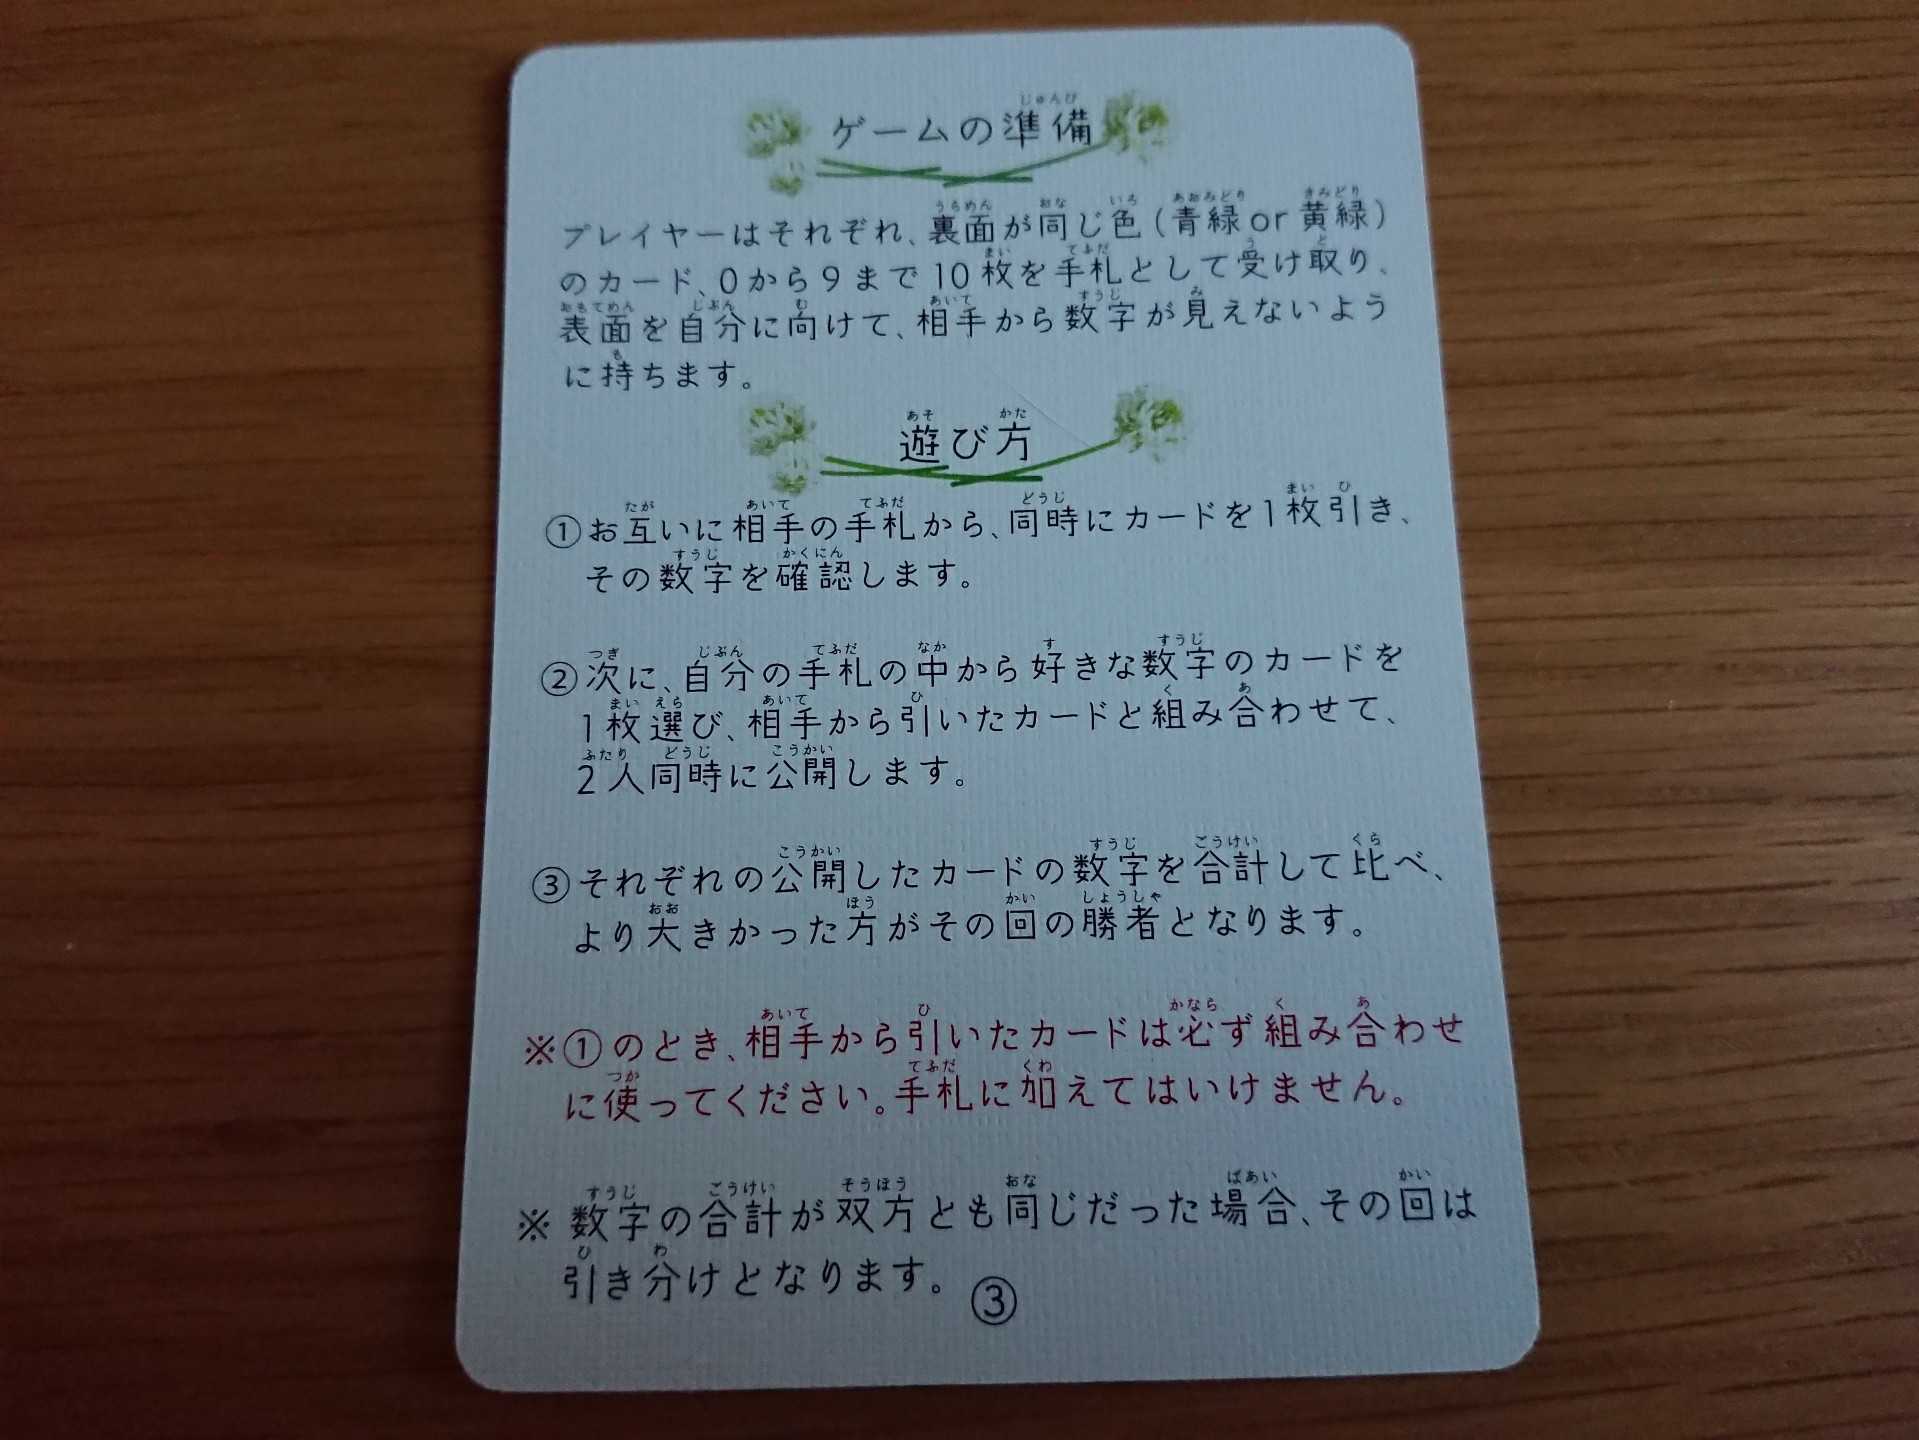 ゲームの準備
プレイヤーはそれぞれ、裏面が同じ色(青緑or黄緑)
のカード、0から9まで10枚を手札として受け取り、
表面を自分に向けて、相手から数字が見えないよう
に持ちます。
遊び方
①お互いに相手の手札から、同時にカードを1枚引き、
その数字を確認します。
②次に、自分の手札の中から好きな数字のカードを
1枚選び、相手から引いたカードと組み合わせて、
2人同時に公開します。
③それぞれの公開したカードの数字を合計して比べ、
より大きかった方がその回の勝者となります。
※①のとき、相手から引いたカードは必ず組み合わせ
に使ってください。手札に加えてはいけません。
※数字の合計が双方とも同じだった場合、その回は
引き分けとなります。
③